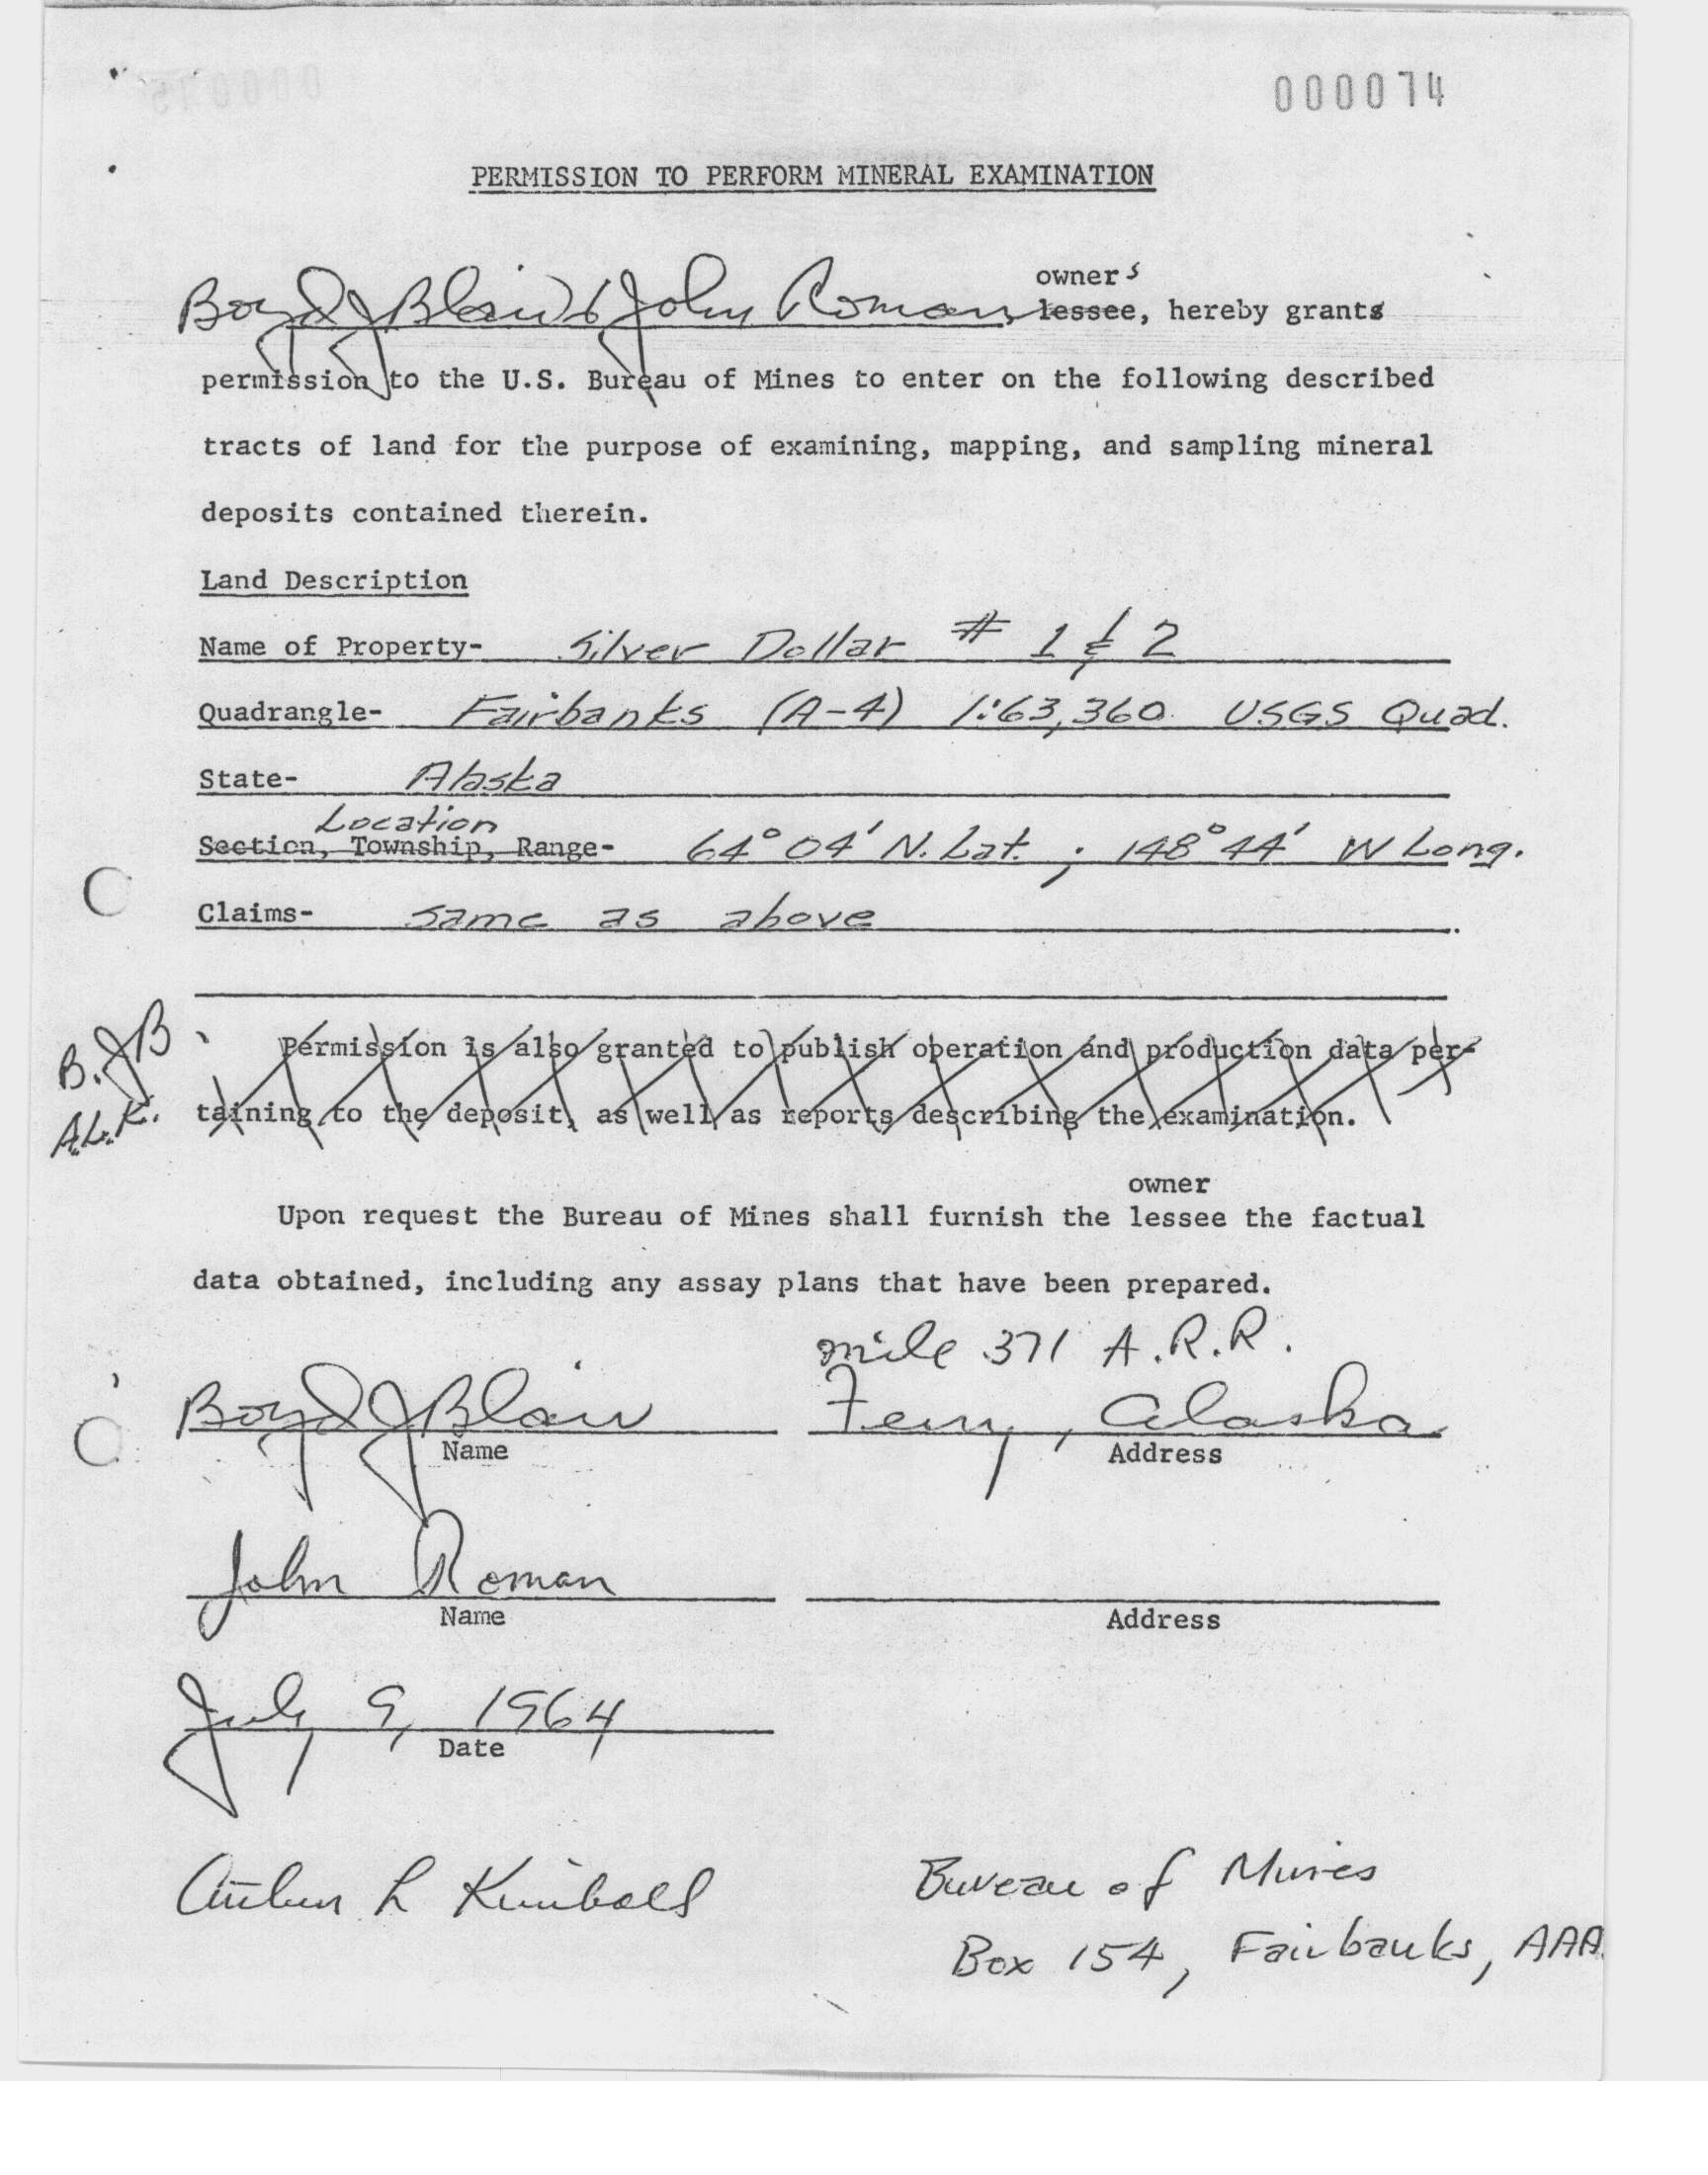 000074
PERMISSION TO PERFORM MINERAL EXAMINATION
owners
Boyd J Blair & John Roman, lessee, hereby grants
permission to the U.S. Bureau of Mines to enter on the following described
tracts of land for the purpose of examining, mapping, and sampling mineral
deposits contained therein.
Land Description
Name of Property- Silver Dollar # 1 & 2
Quadrangle- Fairbanks (A-4) 1:63,360 USGS Quad.
State- Alaska
Location
Section, Township, Range- 64° 04' N. Lat. ; 148° 44' W Long.
Claims- same as above.
B.JB
Permission is also granted to publish operation and production data per-
A.L.K.
taining to the deposit, as well as reports describing the examination.
owner
Upon request the Bureau of Mines shall furnish the lessee the factual
data obtained, including any assay plans that have been prepared.
mile 371 A.R.R.
Boyd J Blair Ferry, Alaska
Name Address
John Roman
Name Address
July 9, 1964
Date
Arthur L Kimball Bureau of Mines
Box 154, Fairbanks, AAA.